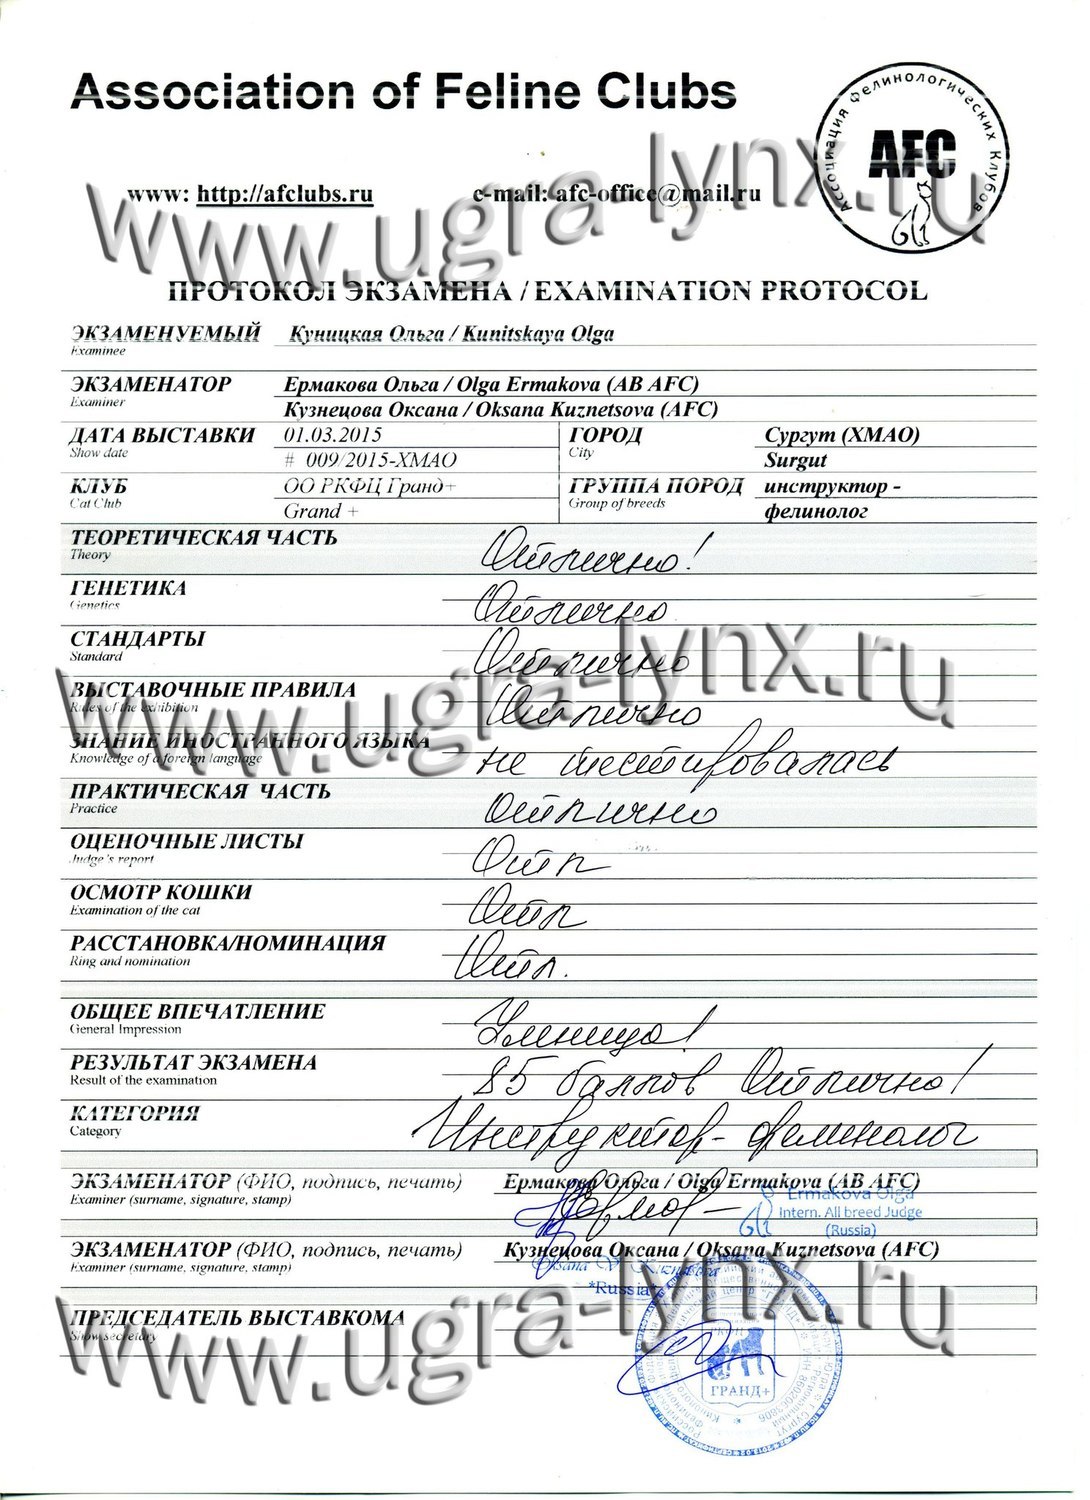 Association of Feline Clubs
Ассоциация Фелинологических Клубов
AFC
www: http://afclubs.ru e-mail: afc-office@mail.ru
www.ugra-lynx.ru
ПРОТОКОЛ ЭКЗАМЕНА / EXAMINATION PROTOCOL
ЭКЗАМЕНУЕМЫЙ Куницкая Ольга / Kunitskaya Olga
Examinee
ЭКЗАМЕНАТОР Ермакова Ольга / Olga Ermakova (AB AFC)
Examiner
Кузнецова Оксана / Oksana Kuznetsova (AFC)
ДАТА ВЫСТАВКИ 01.03.2015 ГОРОД Сургут (ХМАО)
Show date # 009/2015-ХМАО City Surgut
КЛУБ ОО РКФЦ Гранд+ ГРУППА ПОРОД инструктор -
Cat Club Grand + Group of breeds фелинолог
ТЕОРЕТИЧЕСКАЯ ЧАСТЬ Отлично!
Theory
ГЕНЕТИКА Отлично
Genetics
СТАНДАРТЫ Отлично
Standard
ВЫСТАВОЧНЫЕ ПРАВИЛА Отлично
Rules of the exhibition
www.ugra-lynx.ru
ЗНАНИЕ ИНОСТРАННОГО ЯЗЫКА не тестировалась
Knowledge of a foreign language
ПРАКТИЧЕСКАЯ ЧАСТЬ отлично
Practice
ОЦЕНОЧНЫЕ ЛИСТЫ Отл
Judge's report
ОСМОТР КОШКИ Отл
Examination of the cat
РАССТАНОВКА/НОМИНАЦИЯ Отл.
Ring and nomination
ОБЩЕЕ ВПЕЧАТЛЕНИЕ Умница!
General Impression
РЕЗУЛЬТАТ ЭКЗАМЕНА 85 баллов Отлично!
Result of the examination
КАТЕГОРИЯ Инструктор-фелинолог
Category
ЭКЗАМЕНАТОР (ФИО, подпись, печать) Ермакова Ольга / Olga Ermakova (AB AFC)
Examiner (surname, signature, stamp)
Ermakova Olga
Intern. All breed Judge
(Russia)
ЭКЗАМЕНАТОР (ФИО, подпись, печать) Кузнецова Оксана / Oksana Kuznetsova (AFC)
Examiner (surname, signature, stamp)
Oksana V. Kuznetsova
*Russia*
www.ugra-lynx.ru
ПРЕДСЕДАТЕЛЬ ВЫСТАВКОМА
Show secretary
РКФЦ
ГРАНД+